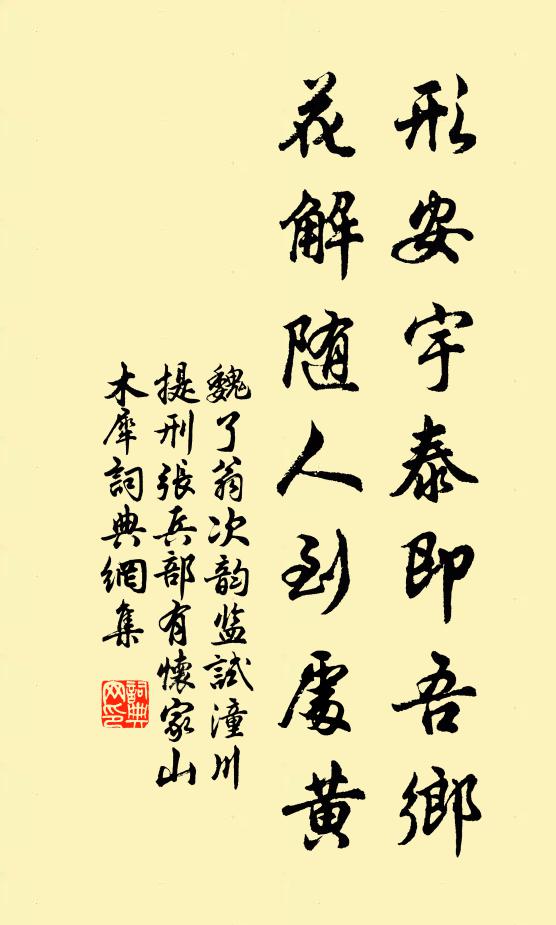 形安宇泰即吾鄉
花解随人到處黄
魏了翁次韵监試潼川
提刑張兵部有懷家山
木犀詞典網集
詞典
网印